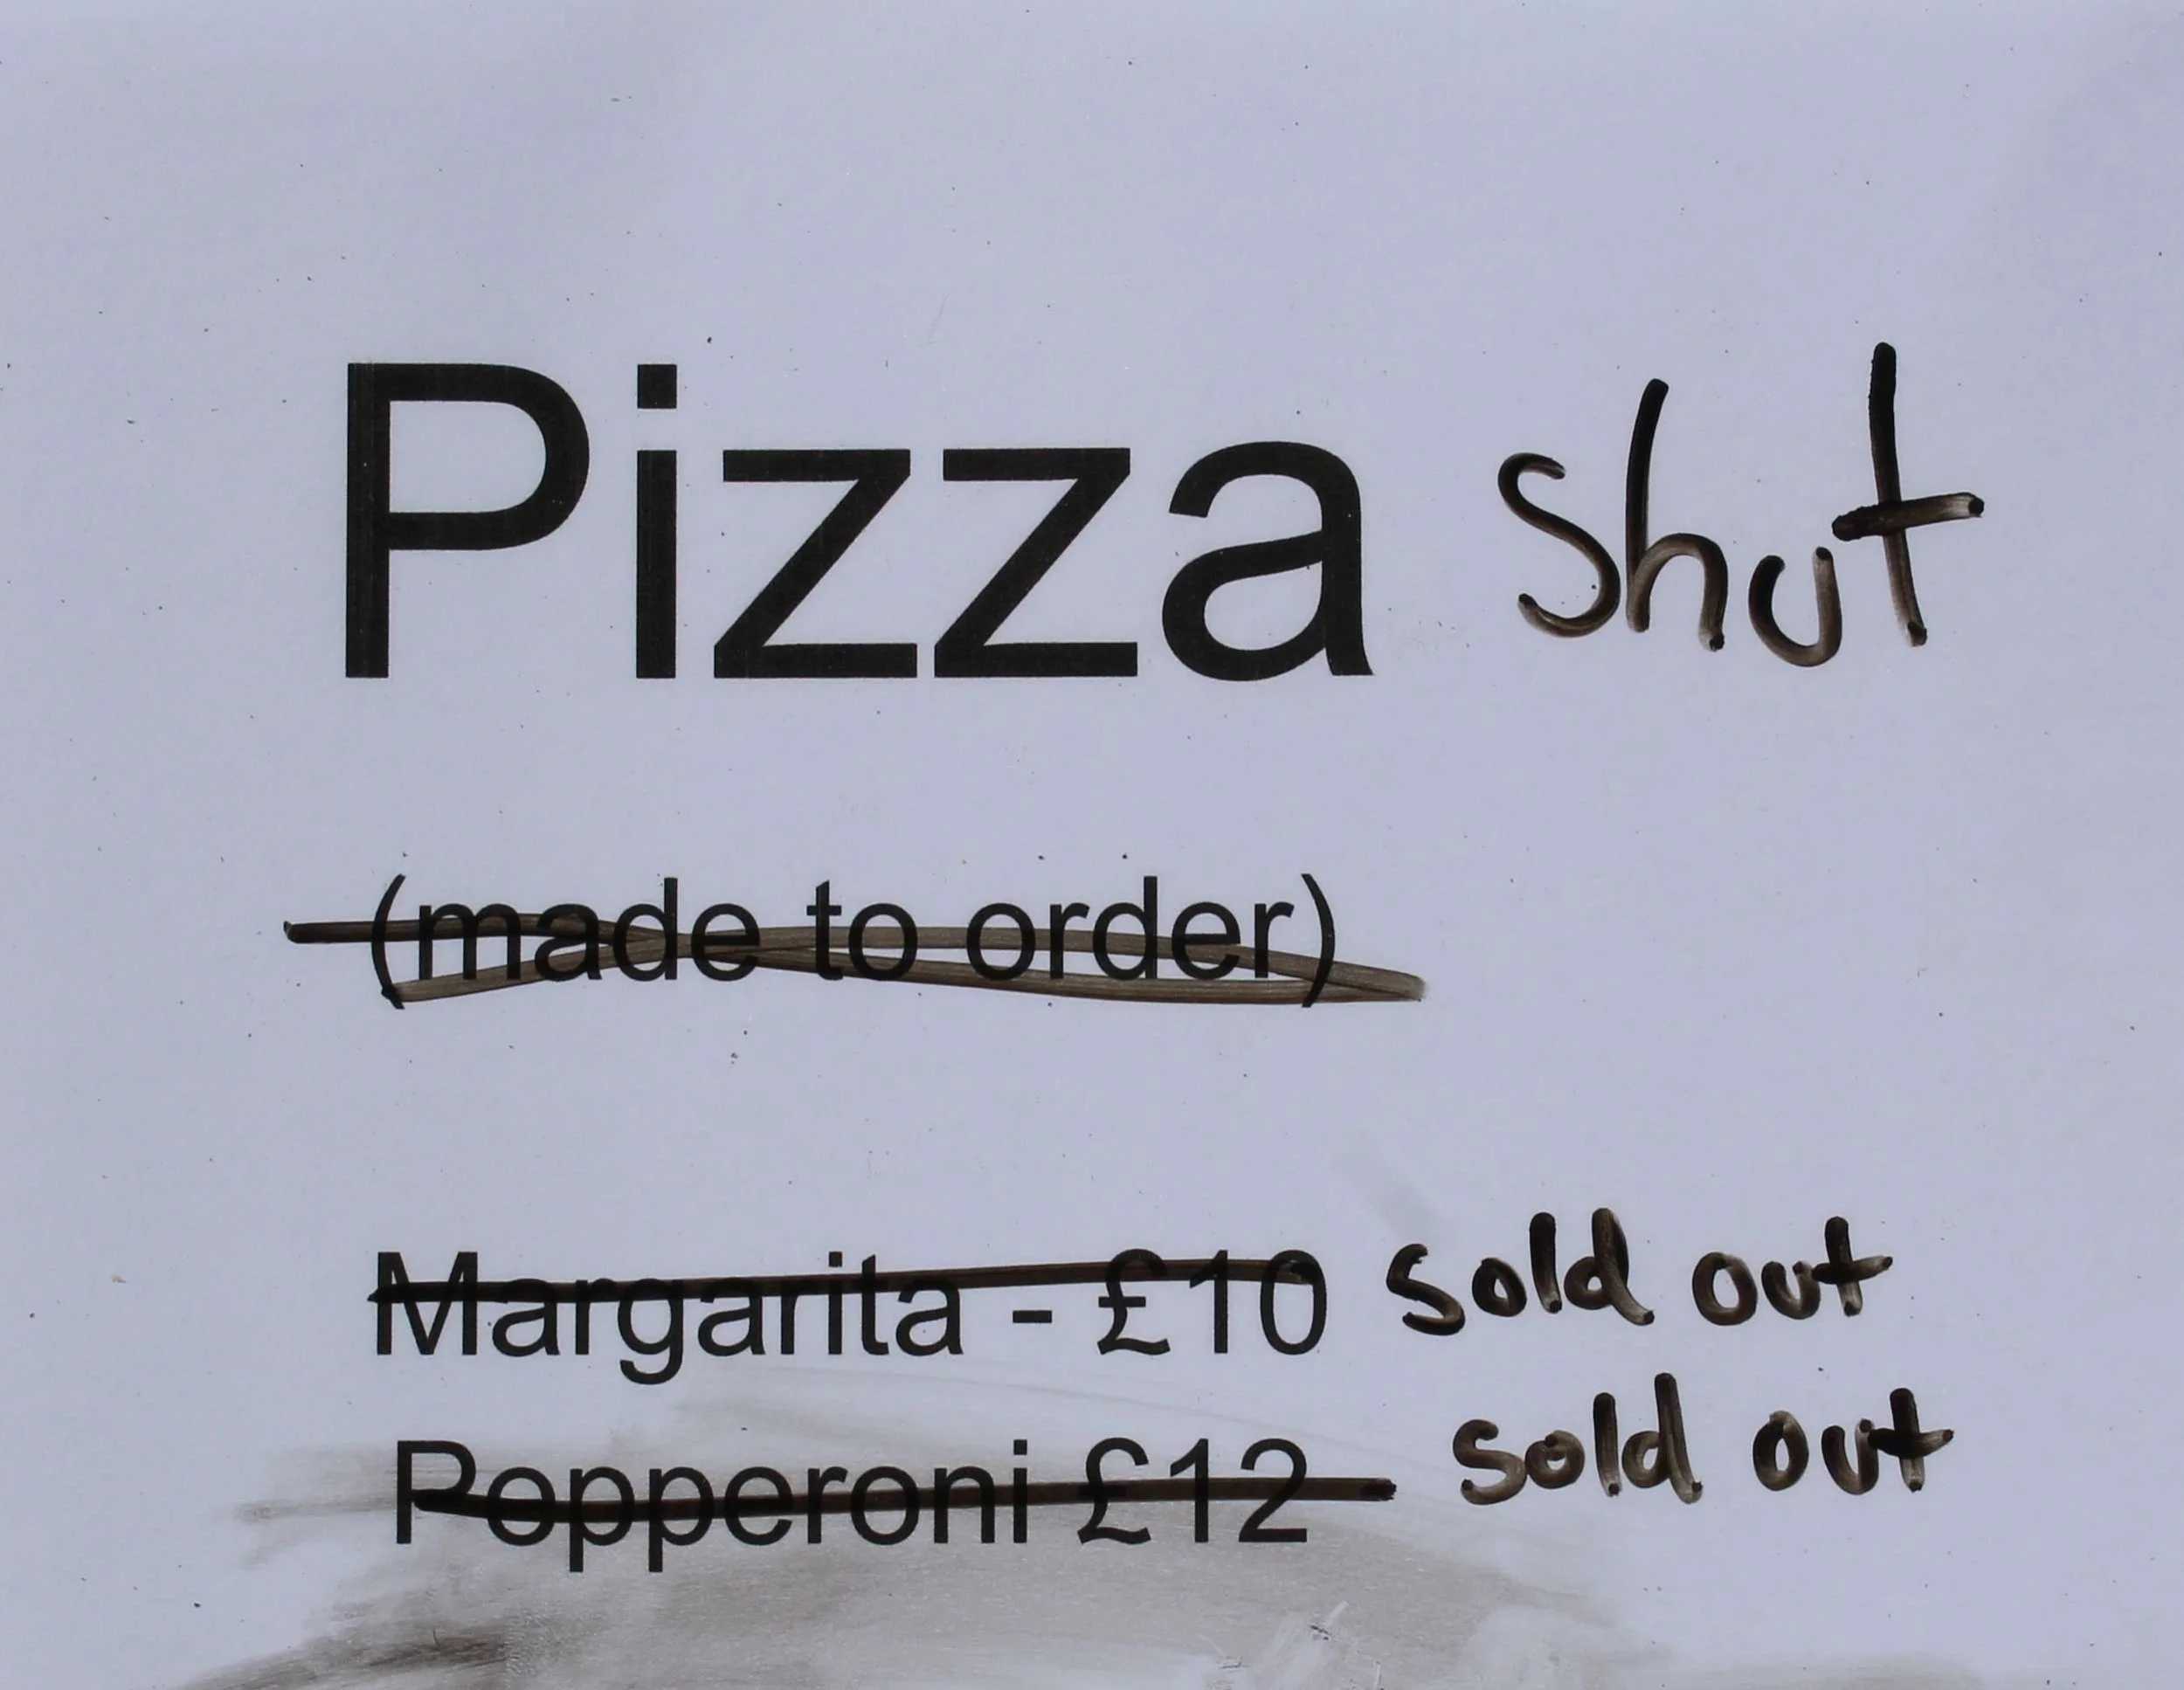 Pizza shut
(made to order)
Margarita - £10 sold out
Popperoni £12 sold out